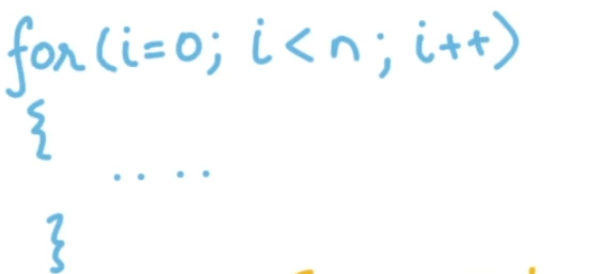 for(i=0; i<n; i++)
{
.. ..
}